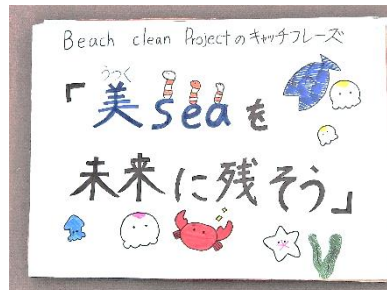 Beach clean Projectのキャッチフレーズ
うつく
「美seaを
未来に残そう」